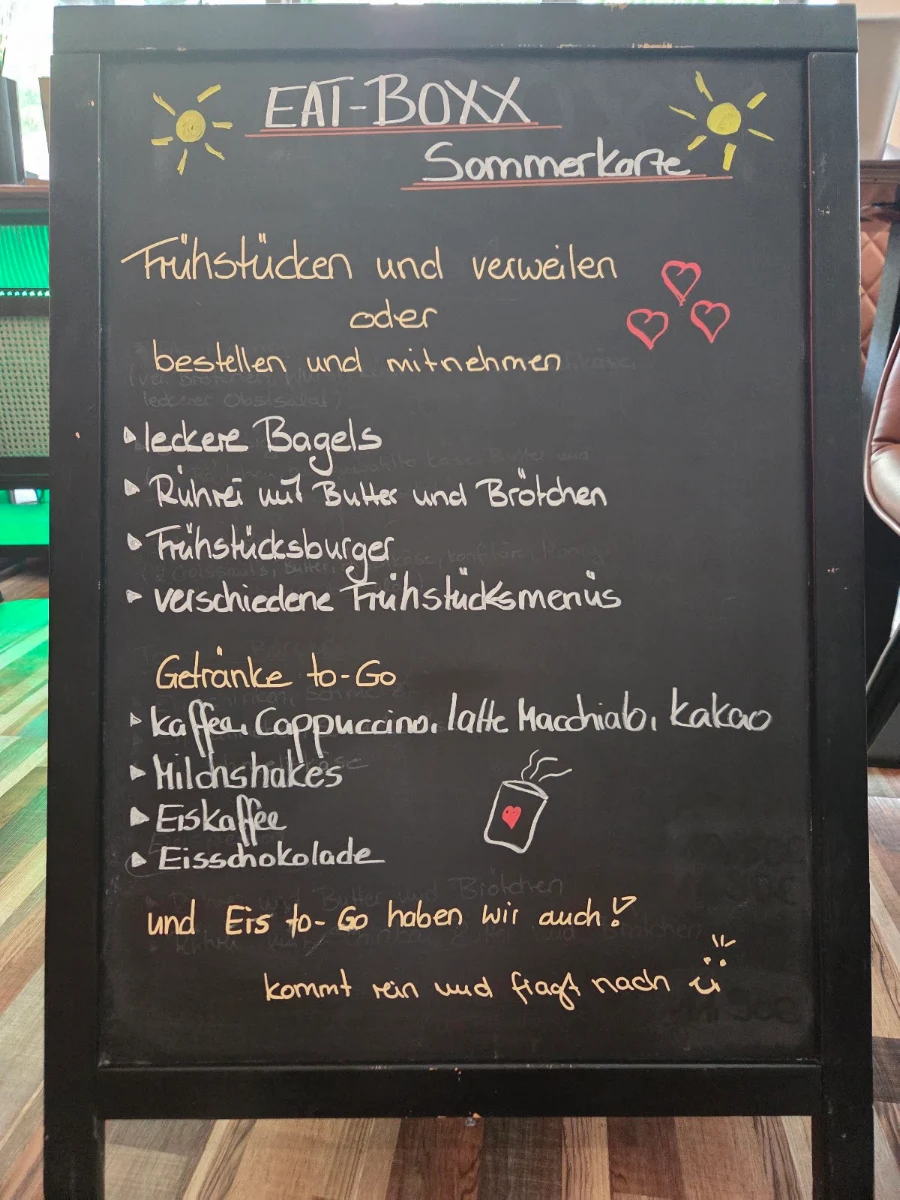 EAT-BOXX
Sommerkarte
Frühstücken und verweilen
oder
bestellen und mitnehmen
leckere Bagels
Rührei mit Butter und Brötchen
Frühstücksburger
verschiedene Frühstücksmenüs
Getränke to-Go
Kaffee, Cappuccino, latte Macchiato, Kakao
Milchshakes
Eiskaffee
Eisschokolade
und Eis to-Go haben wir auch!
kommt rein und fragt nach